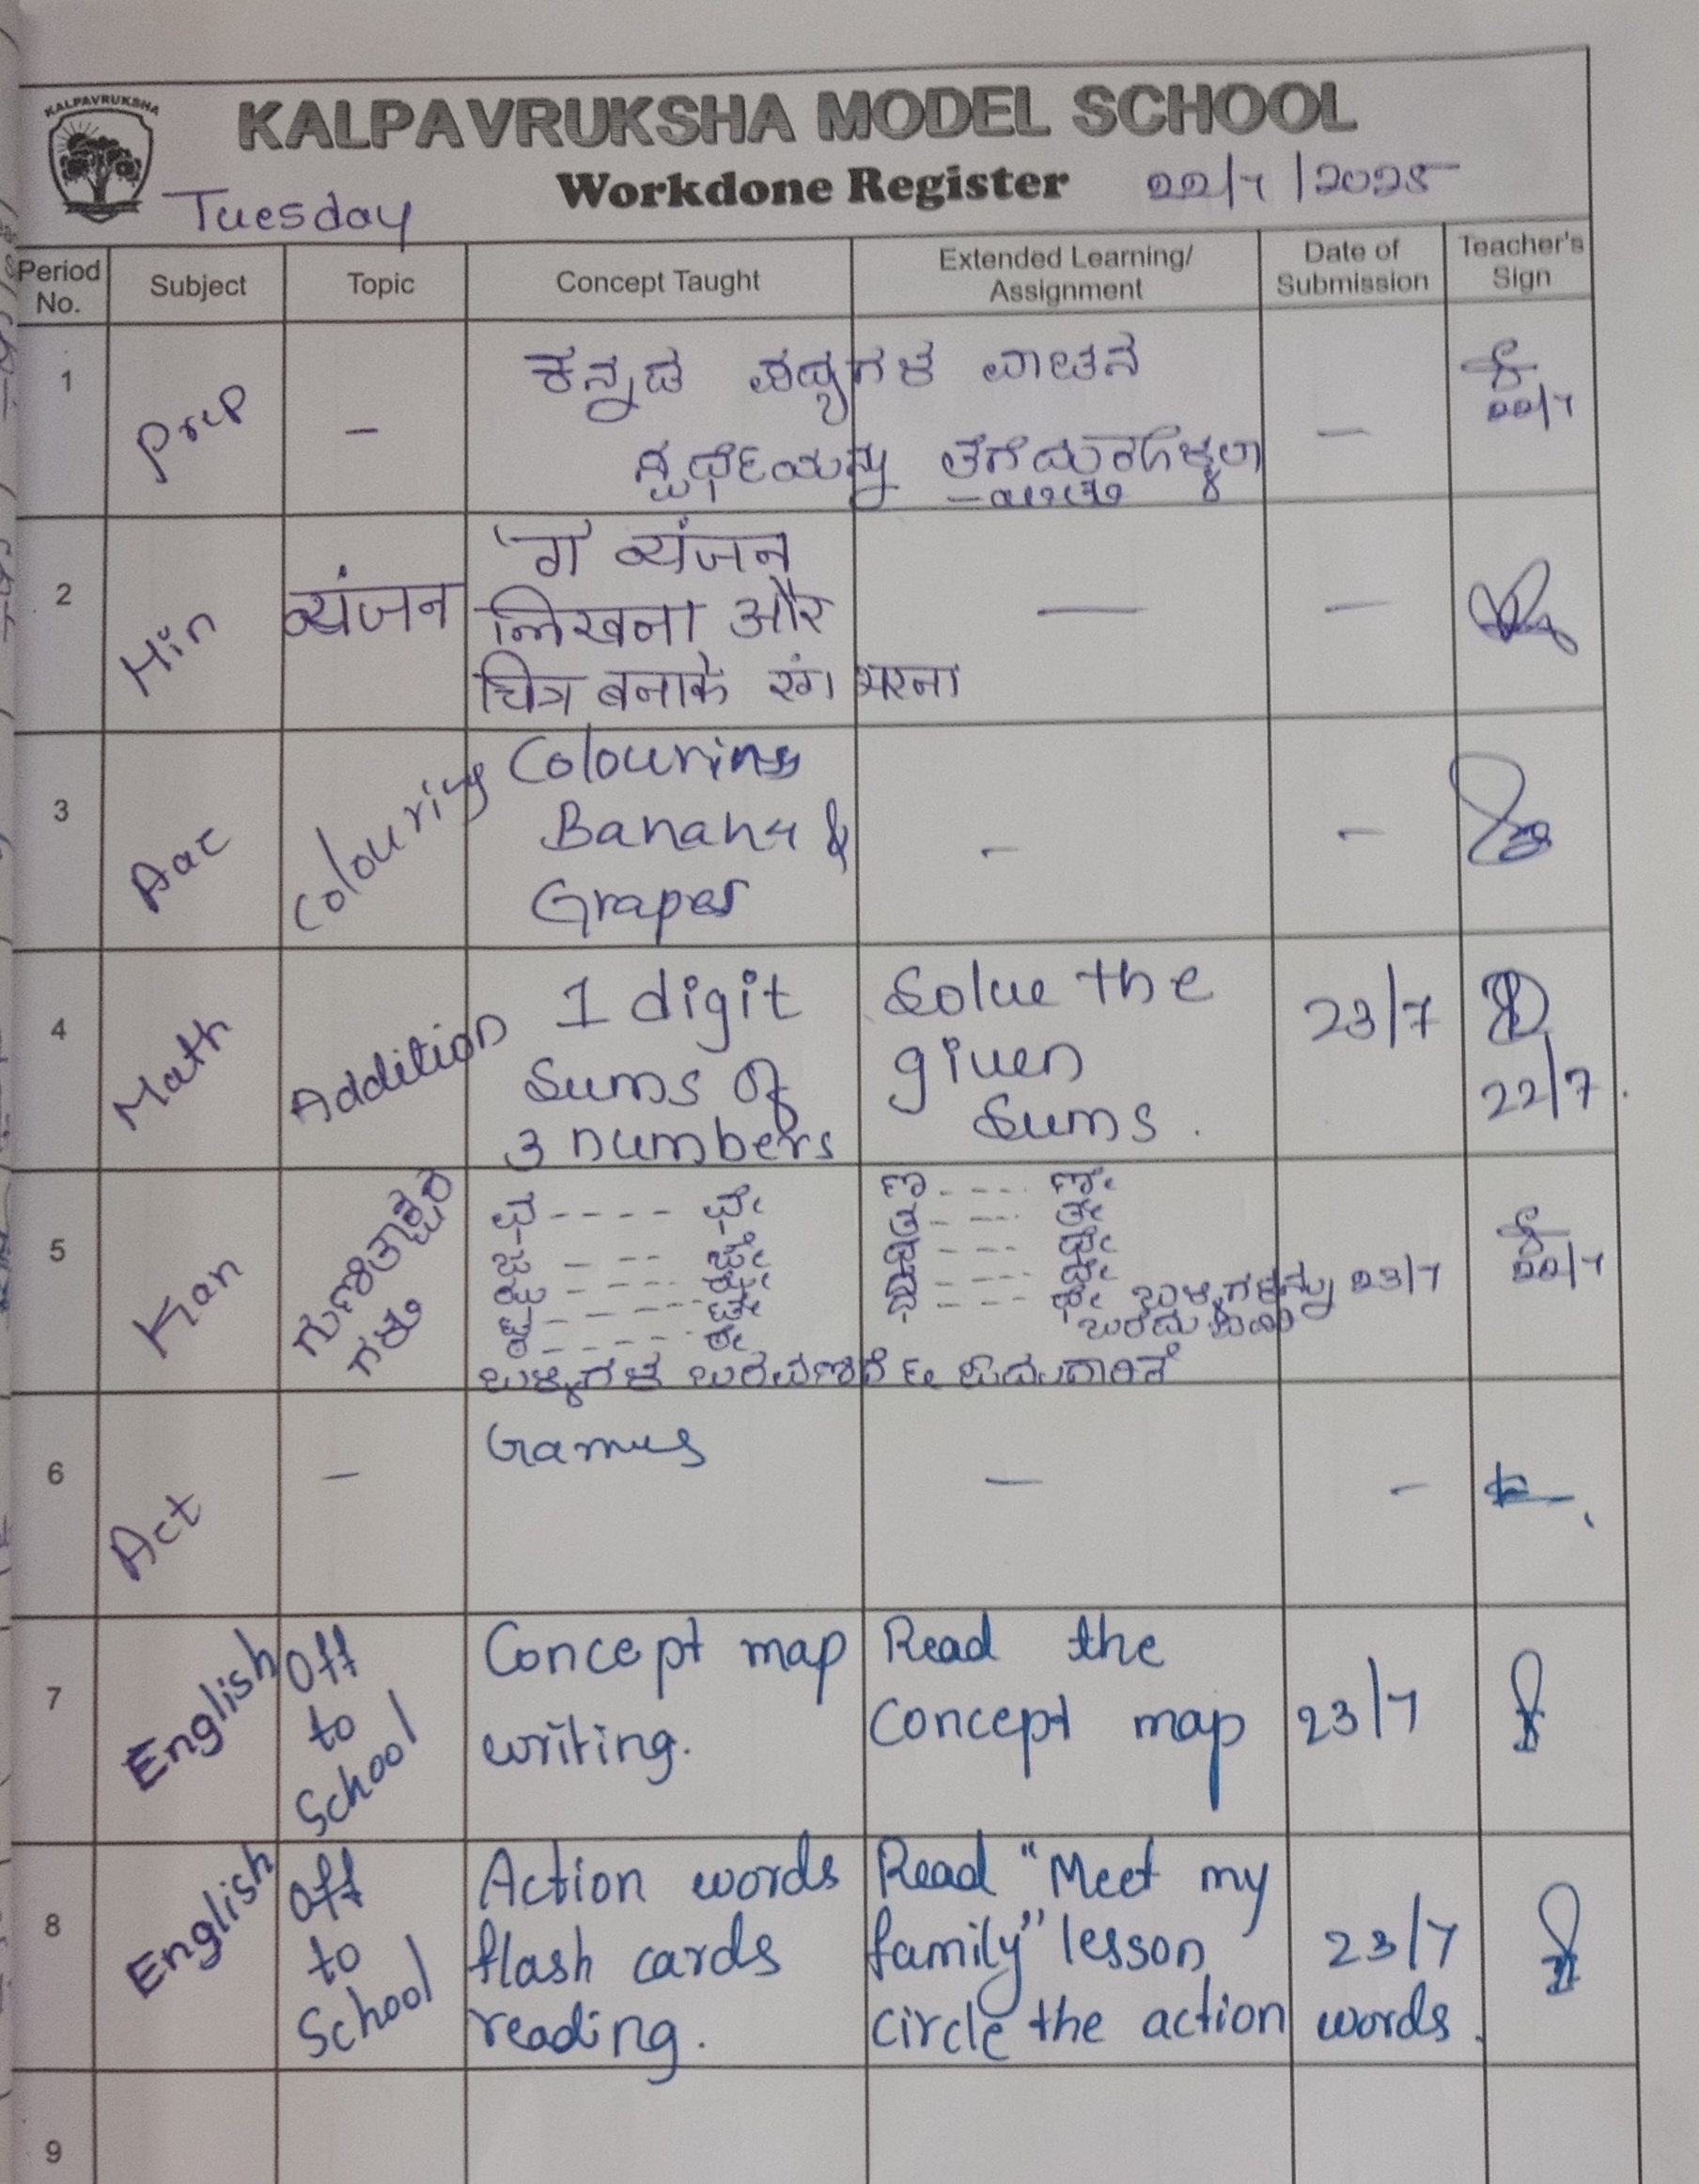 KALPAVRUKSHA
KALPAVRUKSHA MODEL SCHOOL
Workdone Register
22/7/2025
Tuesday
Period No. Subject Topic Concept Taught Extended Learning/ Assignment Date of Submission Teacher's Sign
1 Prep –
ಕನ್ನಡ ಪದ್ಯಗಳ ವಾಚನ
ಸ್ಪರ್ಧೆಯನ್ನು
–
22/7
2 Hin व्यंजन
'ग' व्यंजन
लिखना और
चित्र बनाके रंग भरना
— –
3 Aac Colouring
Colouring
Banana &
Grapes
– –
4 Math Addition
1 digit
sums of
3 numbers
Solve the
given
sums.
23/7
22/7.
5 Kan ಗುಣಿತಾಕ್ಷರ
ಗಳು
ಬಳ್ಳಿಗಳ
ಬಳ್ಳಿಗಳನ್ನು 23/7
22/7
6 Act –
Games
– –
7 English Off
to
School
Concept map
writing.
Read the
Concept map
23/7
8 English Off
to
School
Action words
flash cards
reading.
Read "Meet my
family" lesson
circle the action words.
23/7
9